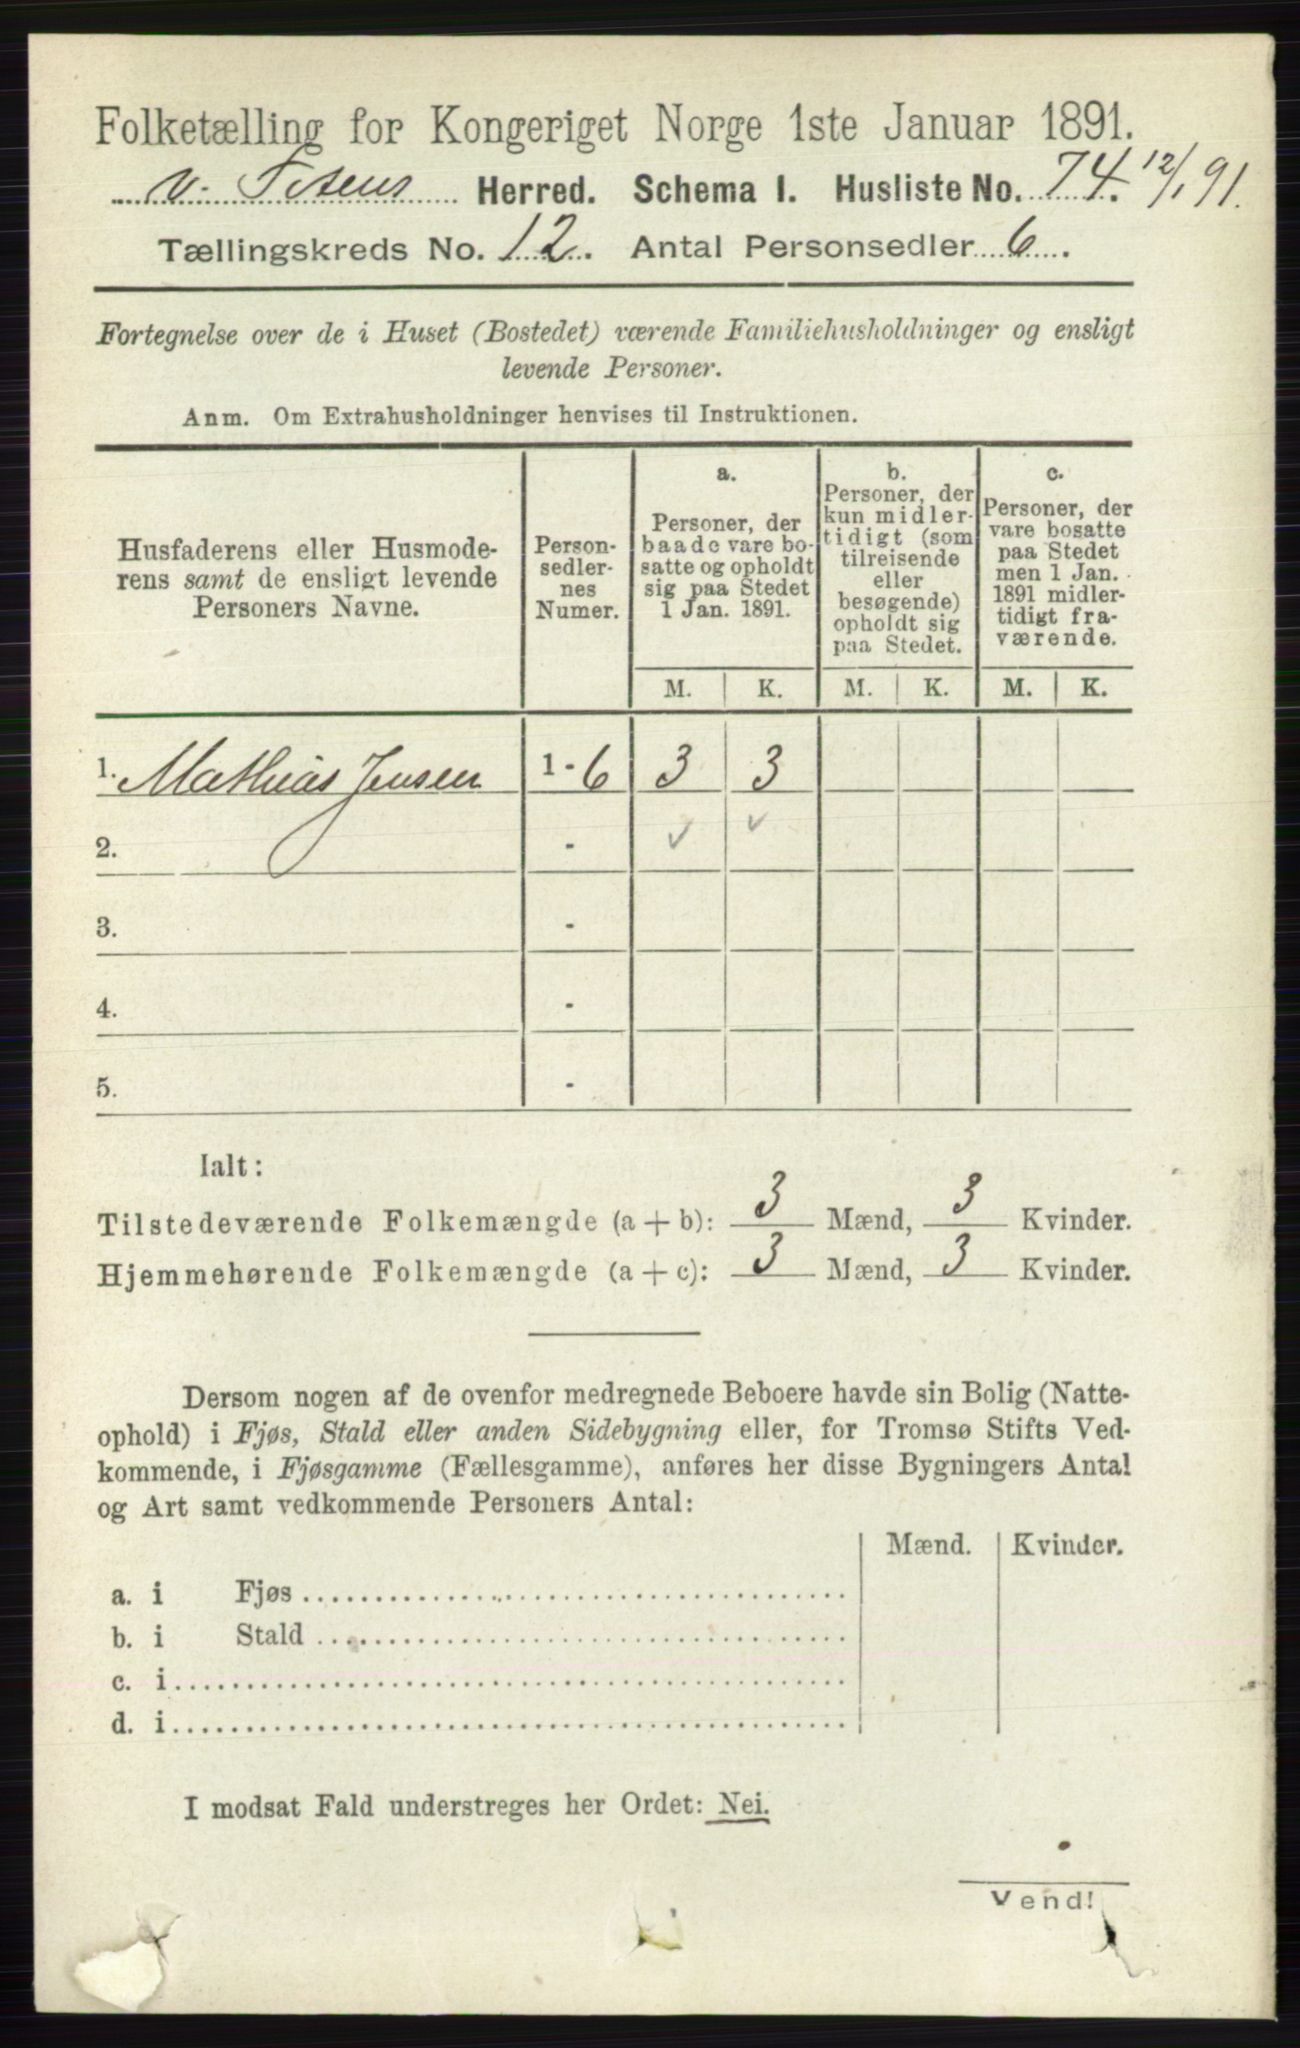 Folketælling for Kongeriget Norge 1ste Januar 1891.
V. Totens Herred. Schema I. Husliste No. 74. 12/1 91.
Tællingskreds No. 12. Antal Personsedler 6.
Fortegnelse over de i Huset (Bostedet) værende Familiehusholdninger og ensligt
levende Personer.
Anm. Om Extrahusholdninger henvises til Instruktionen.
Husfaderens eller Husmode-
rens samt de ensligt levende
Personers Navne.
Person-
sedler-
nes
Numer.
a.
Personer, der
baade vare bo-
satte og opholdt
sig paa Stedet
1 Jan. 1891.
b.
Personer, der
kun midler-
tidigt (som
tilreisende
eller
besøgende)
opholdt sig
paa Stedet.
c.
Personer, der
vare bosatte
paa Stedet
men 1 Jan.
1891 midler-
tidigt fra-
værende.
M. K. M. K. M. K.
1. Mathias Jensen 1 - 6 3 3
2. - ✓ ✓
3. -
4. -
5. -
Ialt:
Tilstedeværende Folkemængde (a + b): 3 Mænd, 3 Kvinder.
Hjemmehørende Folkemængde (a + c): 3 Mænd, 3 Kvinder.
Dersom nogen af de ovenfor medregnede Beboere havde sin Bolig (Natte-
ophold) i Fjøs, Stald eller anden Sidebygning eller, for Tromsø Stifts Ved-
kommende, i Fjøsgamme (Fællesgamme), anføres her disse Bygningers Antal
og Art samt vedkommende Personers Antal:
Mænd. Kvinder.
a. i Fjøs
b. i Stald
c. i
d. i
I modsat Fald understreges her Ordet: Nei.
Vend!